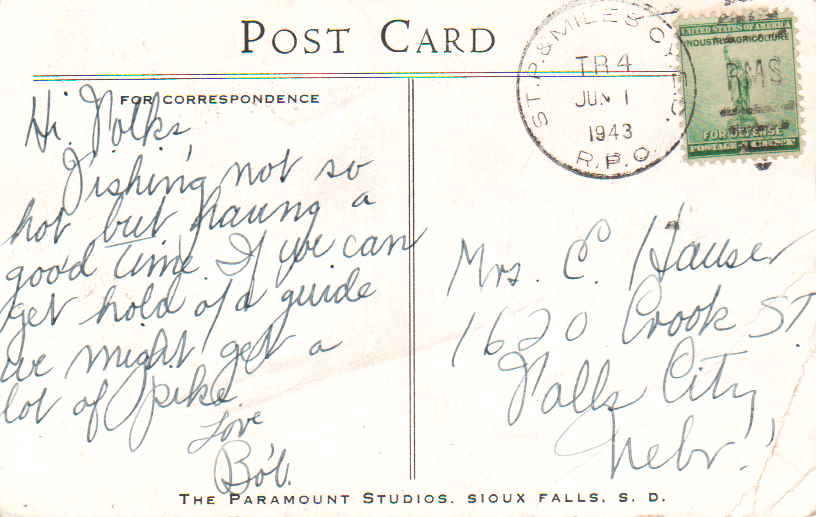 POST CARD
FOR CORRESPONDENCE
Hi Folks,
Fishing not so
hot but having a
good time. If we can
get hold of a guide
we might get a
lot of pike.
Love
Bob.
ST. P. & MILES C
TR 4
JUN 1
1943
R.P.O.
UNITED STATES OF AMERICA
INDUSTRY AGRICULTURE
RMS
FOR DEFENSE
POSTAGE 1 CENT
Mrs. C. Hauser
1620 Crook St.
Falls City,
Nebr.
THE PARAMOUNT STUDIOS. SIOUX FALLS, S. D.